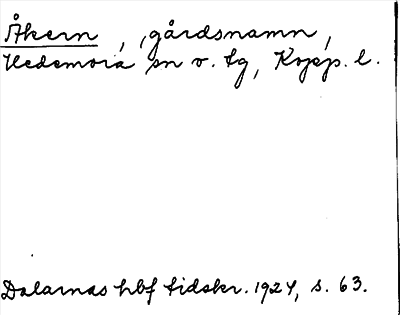 Åkern, gårdsnamn,
Hedemora sn v. tg, Kopp. l.
Dalarnas hbf tidskr. 1924, s. 63.